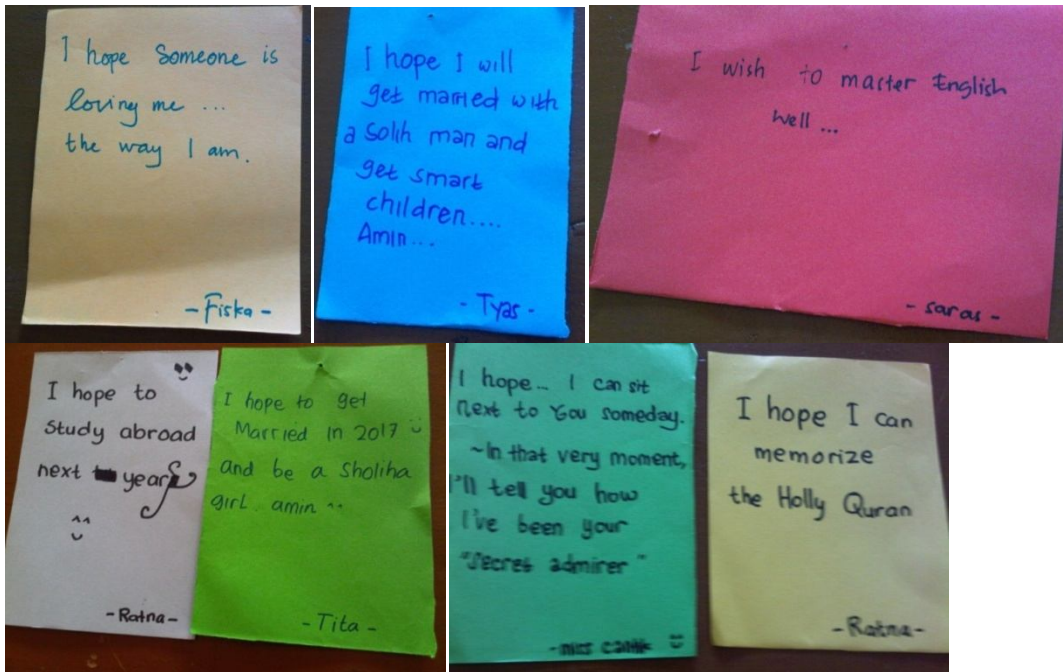 I hope Someone is
loving me ...
the way I am.
- Fiska -
I hope I will
get married with
a Solih man and
get smart
children....
Amin...
- Tyas -
I wish to master English
well ...
- saras -
I hope to
study abroad
next year
^^
- Ratna -
I hope to get
Married in 2017
and be a Sholiha
girl. amin ^^
- Tita -
I hope... I can sit
next to You someday.
~In that very moment,
I'll tell you how
I've been your
"secret admirer"
- miss cantik
I hope I can
memorize
the Holly Quran
- Ratna -